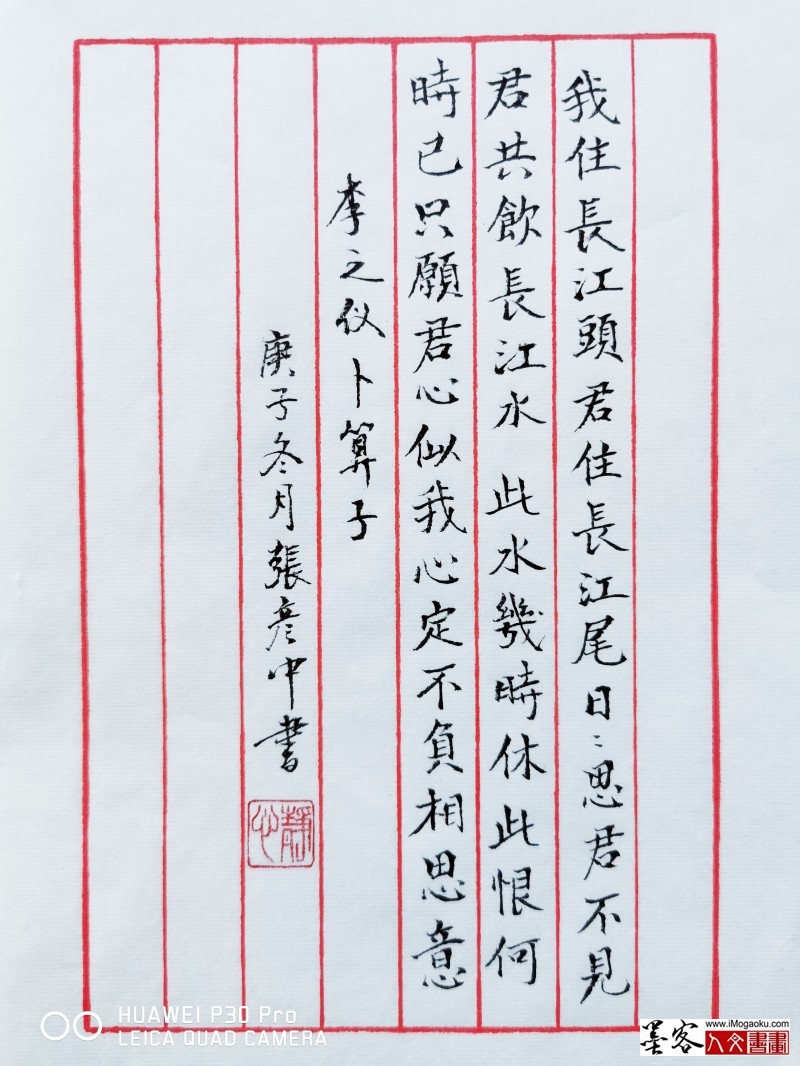 我住長江頭君住長江尾日〻思君不見
君共飲長江水 此水幾時休此恨何
時已只願君心似我心定不負相思意
李之仪卜算子
庚子冬月張彦中書
靜心
HUAWEI P30 Pro
LEICA QUAD CAMERA
www.iMogaoku.com
墨客 人文書畫